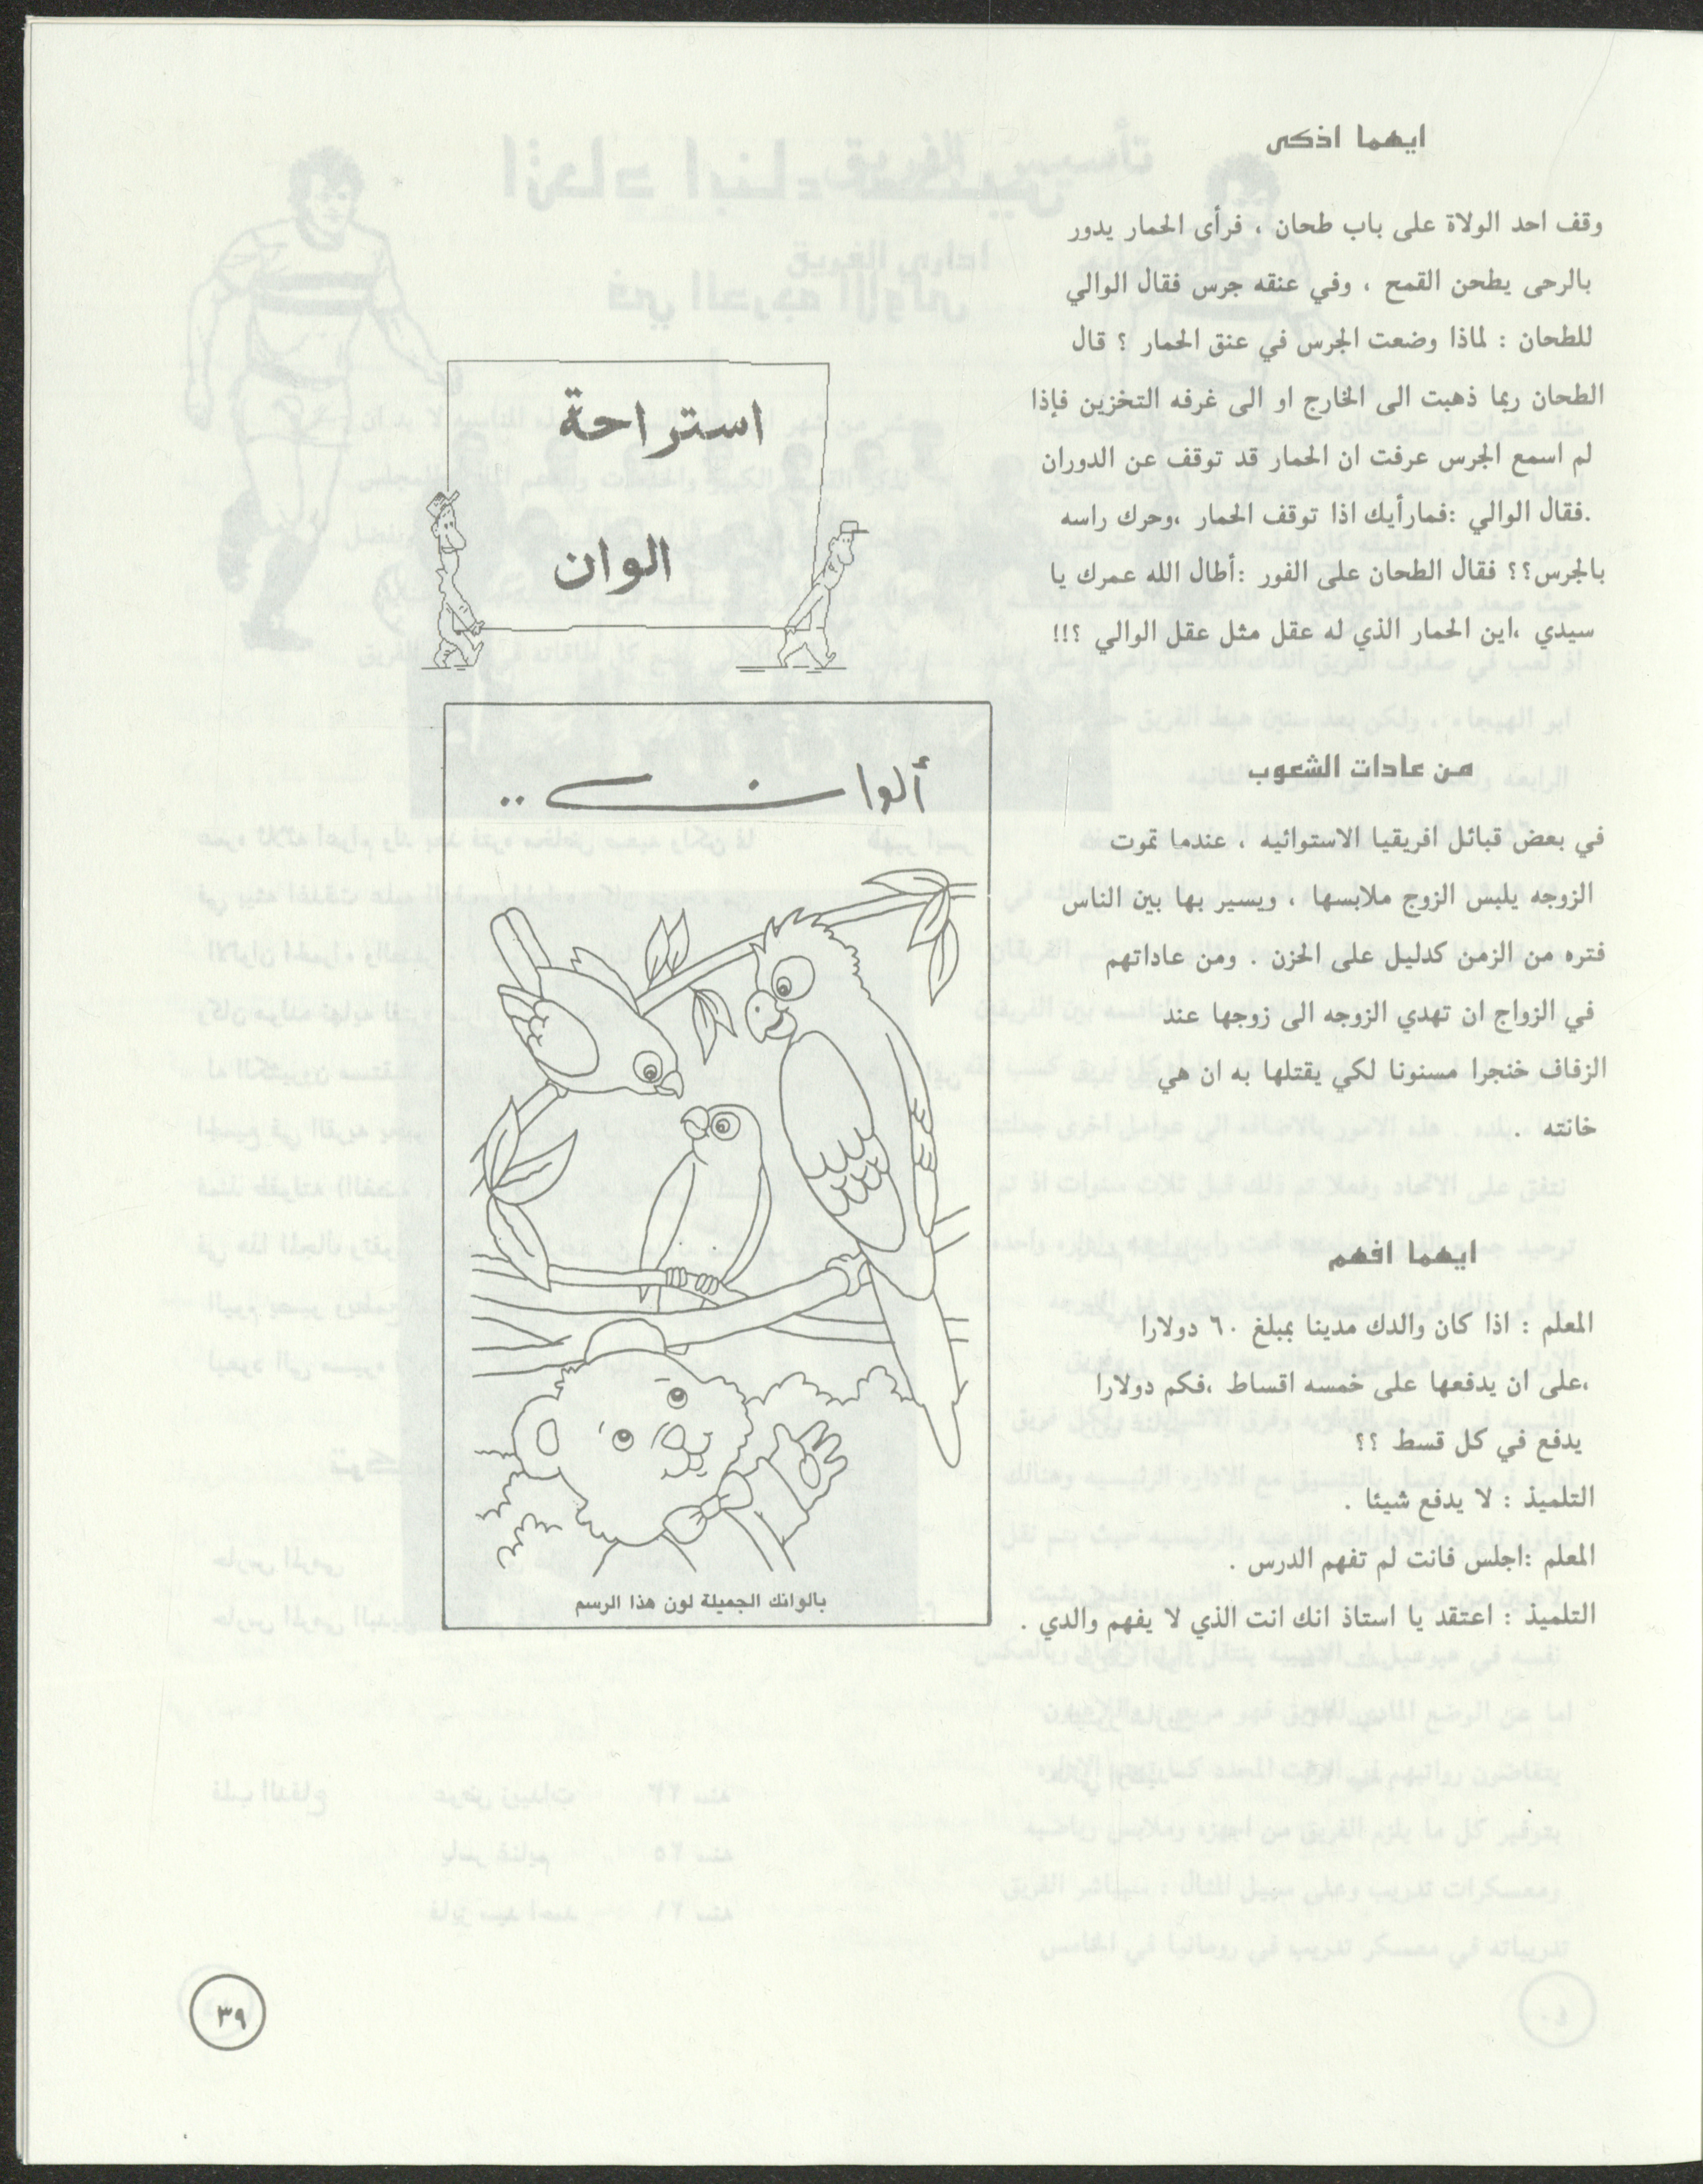 ايهما اذكى
وقف احد الولاة على باب طحان ، فرأى الحمار يدور
بالرحى يطحن القمح ، وفي عنقه جرس فقال الوالي
للطحان : لماذا وضعت الجرس في عنق الحمار ؟ قال
الطحان ربما ذهبت الى الخارج او الى غرفه التخزين فإذا
لم اسمع الجرس عرفت ان الحمار قد توقف عن الدوران
.فقال الوالي :فمارأيك اذا توقف الحمار ،وحرك راسه
بالجرس؟؟ فقال الطحان على الفور :أطال الله عمرك يا
سيدي ،اين الحمار الذي له عقل مثل عقل الوالي ؟!!
من عادات الشعوب
في بعض قبائل افريقيا الاستوائيه ، عندما تموت
الزوجه يلبس الزوج ملابسها ، ويسير بها بين الناس
فتره من الزمن كدليل على الحزن . ومن عاداتهم
في الزواج ان تهدي الزوجه الى زوجها عند
الزفاف خنجرا مسنونا لكي يقتلها به ان هي
خانته .
ايهما افهم
المعلم : اذا كان والدك مدينا بمبلغ ٦٠ دولارا
،على ان يدفعها على خمسه اقساط ،فكم دولارا
يدفع في كل قسط ؟؟
التلميذ : لا يدفع شيئا .
المعلم :اجلس فانت لم تفهم الدرس .
التلميذ : اعتقد يا استاذ انك انت الذي لا يفهم والدي .
استراحة
الوان
ألوان ..
بالوانك الجميلة لون هذا الرسم
٣٩